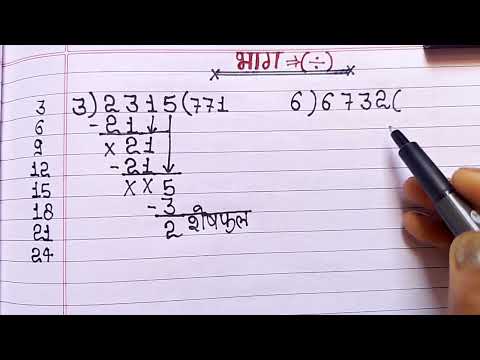 भाग ⇒ (÷)
3 3) 2315 (771 6) 6732 (
6 - 21
9 × 21
12 - 21
15 × × 5
18 - 3
21 2 शेषफल
24